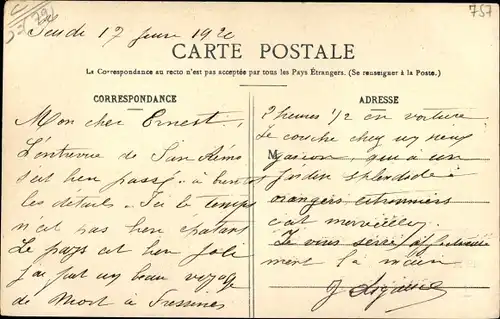 757
CARTE POSTALE
La Correspondance au recto n'est pas acceptée par tous les Pays Étrangers. (Se renseigner à la Poste.)
CORRESPONDANCE
Mon cher Ernest,
L'entrevue de San Rémo
s'est bien passé - à bientôt
les détails - Ici le temps
n'est pas bien épatant
Le pays est bien joli
j'ai fait un beau voyage
de Niort à
ADRESSE
2 heures 1/2 en voiture
Je couche chez un
M
garçon, qui a un
jardin splendide à
orangers citronniers
c'est merveilleux
Je vous serre affectueuse
ment la main